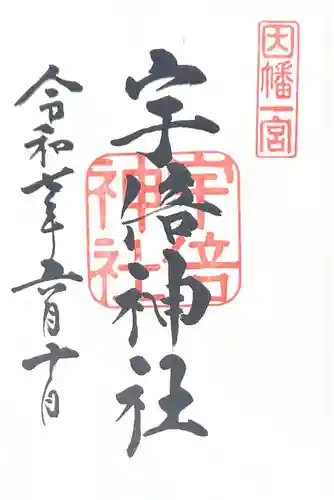 因幡一宮
宇倍神社
宇倍神社
令和七年五月十日